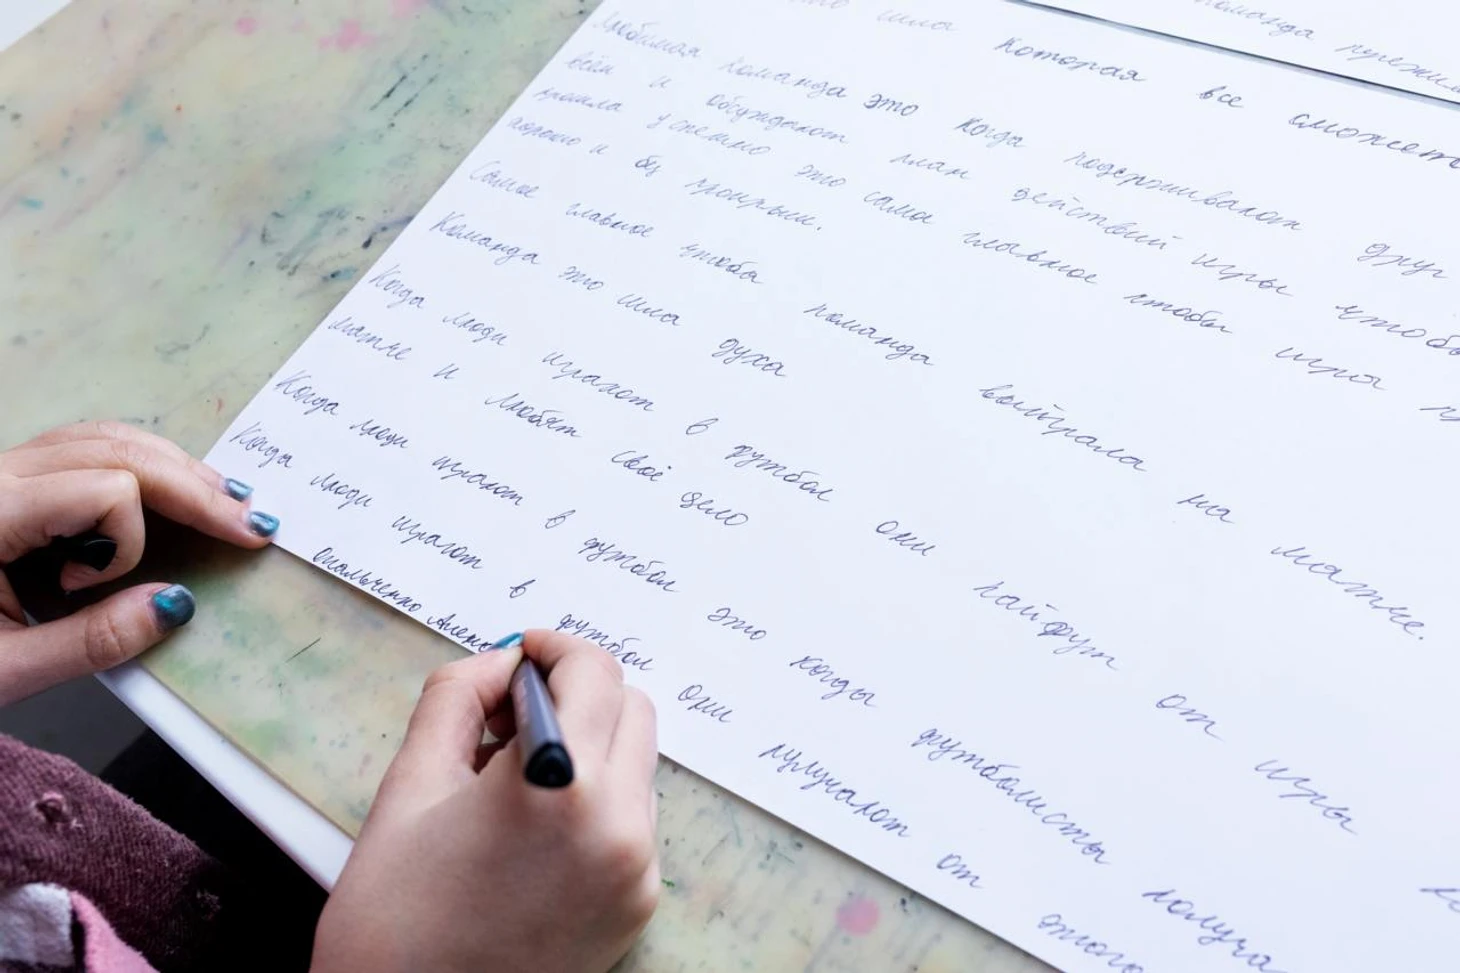 команда
сила которая все сможет
Любимая команда это когда подерживают друг
всем и обсуждают план действий игры чтобы
прошла успешно это сама главное чтобы игра
хорошо и без проигрыш.
Самое главное чтоба команда выйграла на матче.
Команда это сила духа
Когда люди играют в футбол они кайфут от игры
матче и любят своё дело
Когда люди играют в футбол это когды футболисты получа
Когда люди играют в футбол они пулучают от этого